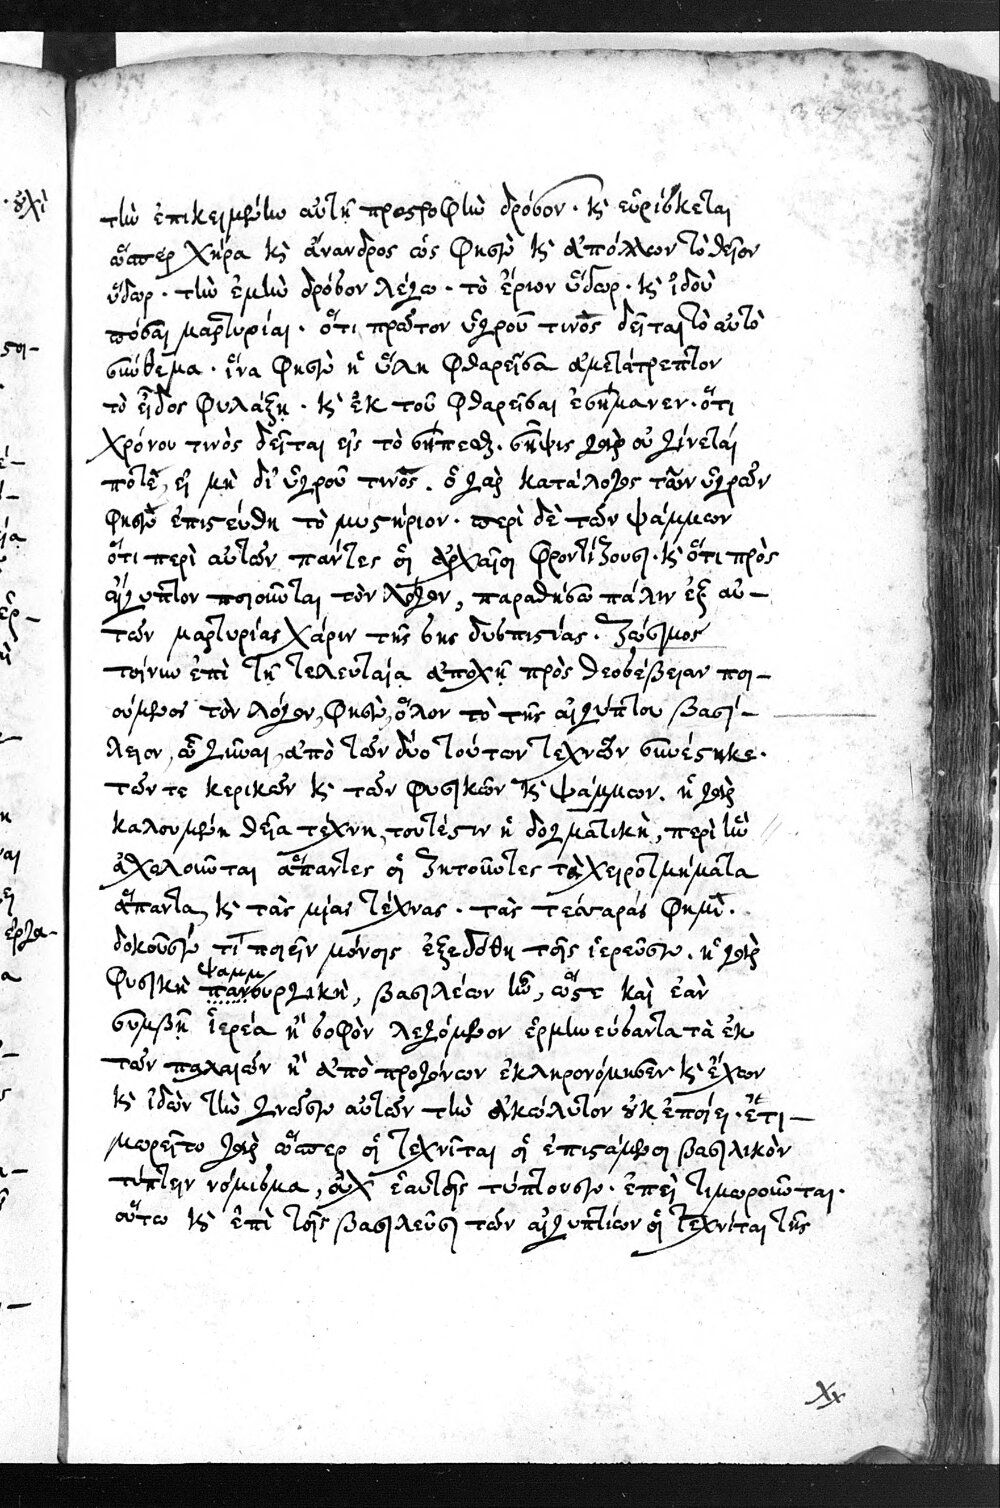 347
τὴν ἐπικειμένην αὐτῇ προσροφὴν δρόσον · καὶ εὑρίσκεται
ὥσπερ χήρα καὶ ἄνανδρος ὥς φησιν καὶ ἀπόλλων τὸ θεῖον
ὕδωρ · τὴν ἐμὴν δρόσον λέγω · τὸ ἀέριον ὕδωρ · καὶ ἰδοὺ
πόσαι μαρτυρίαι · ὅτι πρῶτον ὑγροῦ τινὸς δεῖται τὸ αὐτὸ
σύνθεμα · ἵνα φησὶν ἡ ὕλη φθαρεῖσα ἀμετάτρεπτον
τὸ εἶδος φυλάξῃ · καὶ ἐκ τοῦ φθαρεῖσαι ἐσήμανεν · ὅτι
χρόνου τινὸς δεῖται εἰς τὸ σήπεσθαι · σῆψις γὰρ οὐ γίνεταί
ποτὲ, εἰ μὴ δι' ὑγροῦ τινὸς · ὁ γὰρ κατάλογος τῶν ὑγρῶν
φησὶν ἐπιστεύθη τὸ μυστήριον · περὶ δὲ τῶν ψάμμων
ὅτι περὶ αὐτῶν πάντες οἱ ἀρχαῖοι φροντίζουσι · καὶ ὅτι πρὸς
αἴγυπτον ποιοῦνται τὸν λόγον, παραθήσω πάλιν ἐξ αὐ-
τῶν μαρτυρίας χάριν τῆς σῆς δυσπιστίας · ζώσιμος
τοίνυν ἐπὶ τῇ τελευταίᾳ ἀποχῇ πρὸς θεοσέβειαν ποι-
ούμενος τὸν λόγον, φησὶν, ὅλον τὸ τῆς αἰγύπτου βασί-
λειον, ὦ γύναι, ἀπὸ τῶν δύο τούτων τεχνῶν συνέστηκε ·
τῶν τε κερικῶν καὶ τῶν φυσικῶν καὶ ψάμμων · ἡ γὰρ
καλουμένη θεῖα τέχνη, τουτέστιν ἡ δογματικὴ, περὶ ἣν
ἀχολοῦνται ἅπαντες οἱ ζητοῦντες τὰ χειροτμήματα
ἅπαντα, καὶ τὰς μίας τέχνας · τὰς τέσσαράς φημὶ ·
δοκοῦσίν τι ποιεῖν μόνοις ἐξεδόθη τοῖς ἱερεῦσιν · ἡ γὰρ
ψαμμ
φυσικὴ πανουργικὴ, βασιλέων ἦν, ὥστε καὶ ἐὰν
συμβῇ ἱερέα ἢ σοφὸν λεγόμενον ἑρμηνεύσαντα τὰ ἐκ
τῶν παλαιῶν ἢ ἀπὸ προγόνων ἐκληρονόμησεν καὶ ἔχων
καὶ ἰδὼν τὴν γνῶσιν αὐτῶν τὴν ἀκώλυτον οὐκ ἐποίει · ἐτι-
μωρεῖτο γὰρ ὥσπερ οἱ τεχνῖται οἱ ἐπιστάμενοι βασιλικὸν
τύπτειν νόμισμα, οὐχ ἑαυτοῖς τύπτουσιν · ἐπεὶ τιμωροῦνται ·
οὕτω καὶ ἐπὶ τοῖς βασιλεῦσι τῶν αἰγυπτίων οἱ τεχνῖται τῆς
Χx